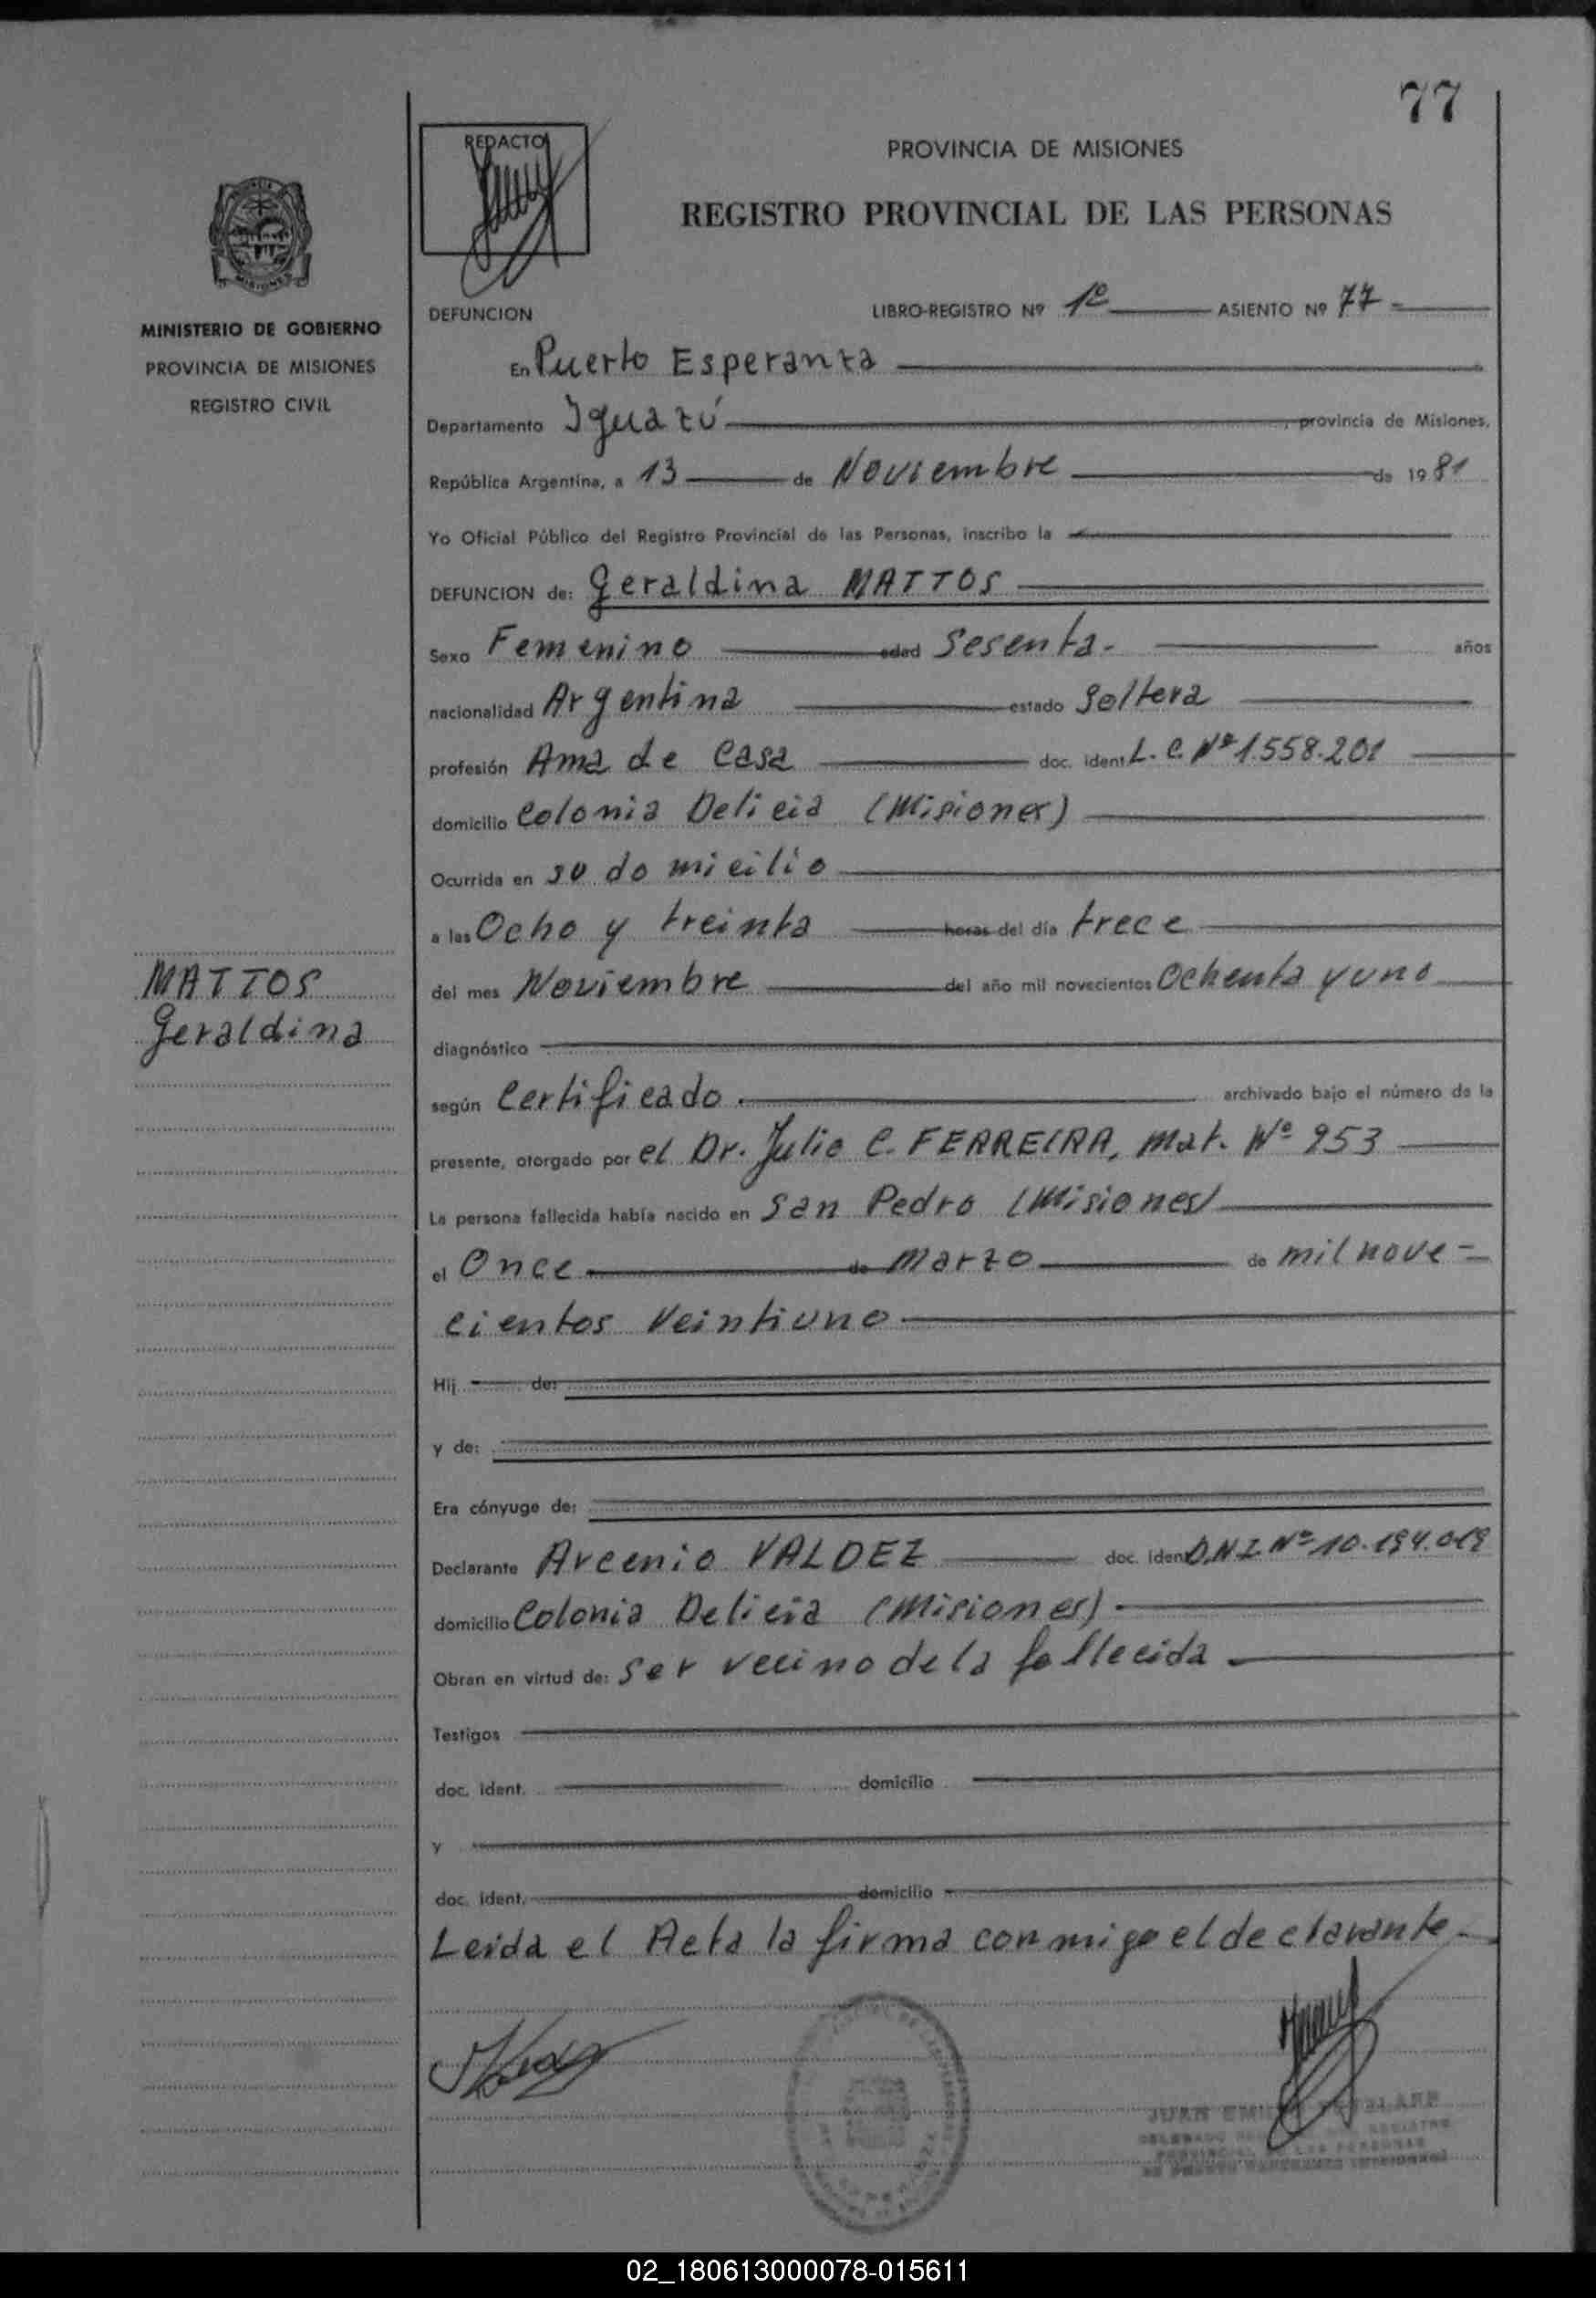 77
REDACTO
PROVINCIA DE MISIONES
REGISTRO PROVINCIAL DE LAS PERSONAS
MISIONES
MINISTERIO DE GOBIERNO
PROVINCIA DE MISIONES
REGISTRO CIVIL
DEFUNCION LIBRO-REGISTRO Nº 1º ASIENTO Nº 77
En Puerto Esperanza
Departamento Iguazú, provincia de Misiones,
República Argentina, a 13 de Noviembre de 1981
Yo Oficial Público del Registro Provincial de las Personas, inscribo la
DEFUNCION de: Geraldina MATTOS
Sexo Femenino edad Sesenta años
nacionalidad Argentina estado Soltera
profesión Ama de Casa doc. ident. L.C. Nº 1.558.201
domicilio Colonia Delicia (Misiones)
Ocurrida en su domicilio
a las Ocho y treinta horas del día trece
del mes Noviembre del año mil novecientos Ochenta y uno
MATTOS
Geraldina
diagnóstico
según Certificado archivado bajo el número de la
presente, otorgado por el Dr. Julio C. FERREIRA, Mat. Nº 953
La persona fallecida había nacido en San Pedro (Misiones)
el Once de Marzo de mil nove=
cientos Veintiuno
Hij de:
y de:
Era cónyuge de:
Declarante Arcenio VALDEZ doc. ident. D.N.I. Nº 10.194.019
domicilio Colonia Delicia (Misiones)
Obran en virtud de: Ser vecino de la fallecida
Testigos
doc. ident. domicilio
y
doc. ident. domicilio
Leida el Acta la firma conmigo el declarante
JUAN
02_180613000078-015611